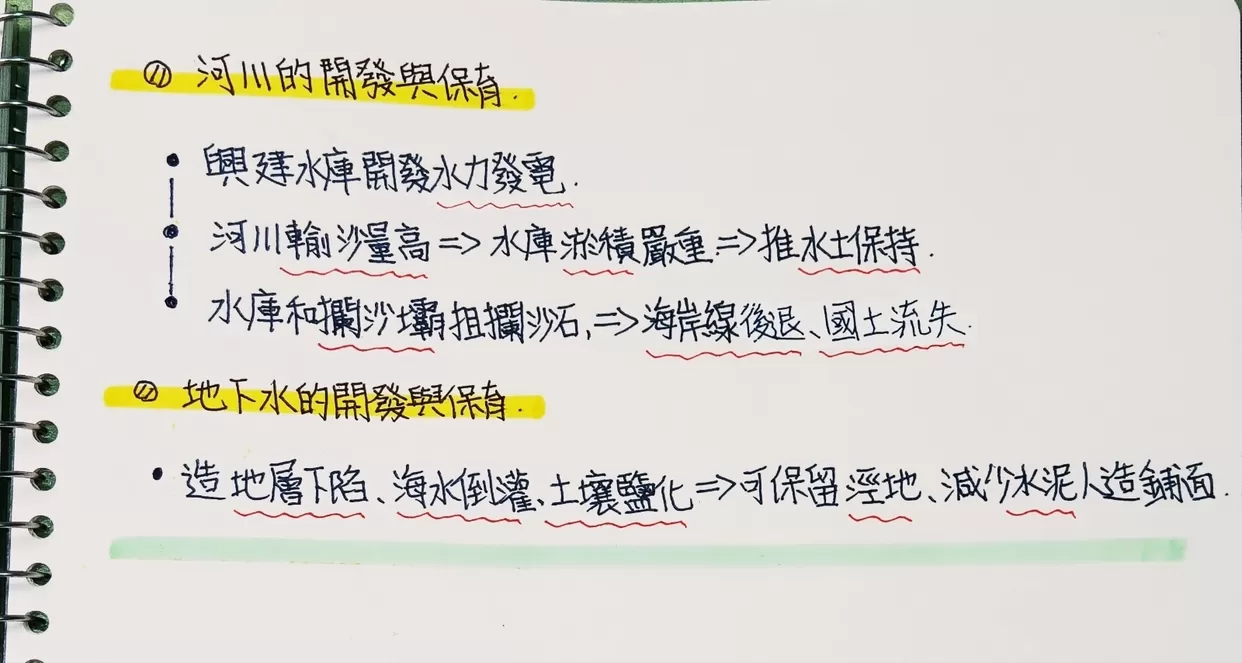 河川的開發與保育.
• 興建水庫開發水力發電.
• 河川輸沙量高=>水庫淤積嚴重=>推水土保持.
• 水庫和攔沙壩阻攔沙石,=>海岸線後退、國土流失.
地下水的開發與保育.
• 造地層下陷、海水倒灌、土壤鹽化=>可保留溼地、減少水泥人造鋪面.